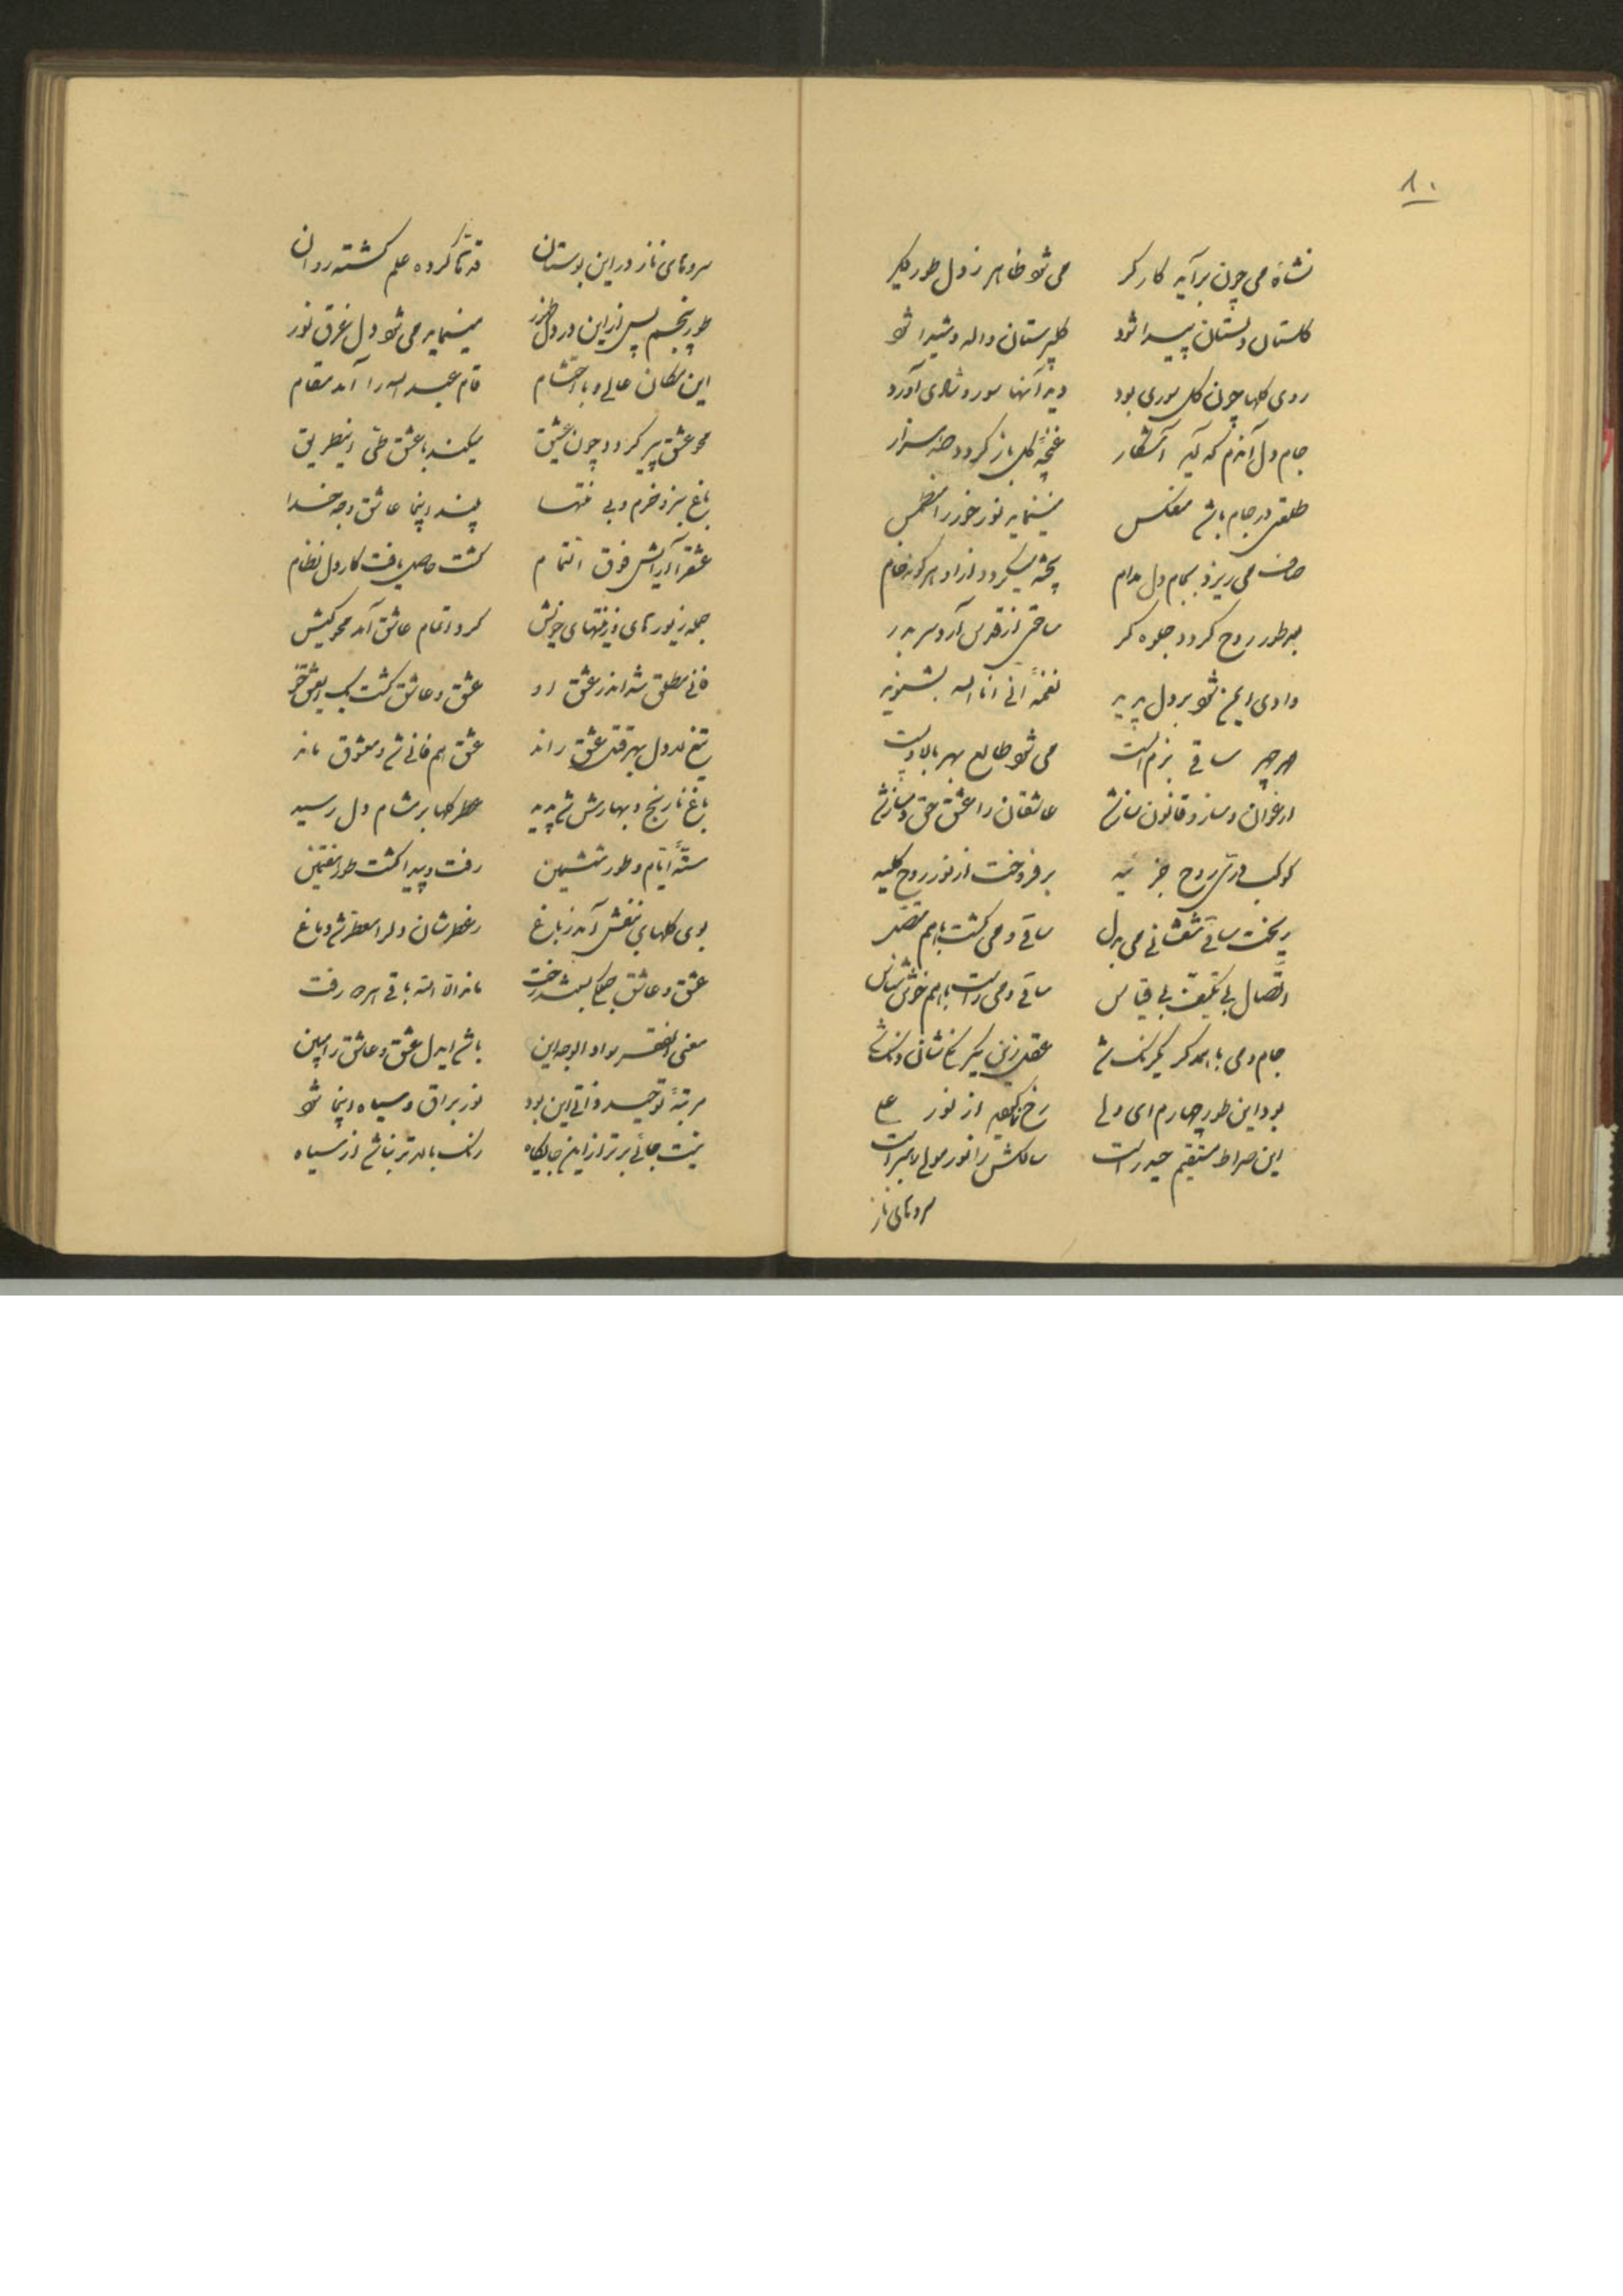 ۸۰
نشأه می چون برآید کارگر می شود ظاهر ز دل طور دگر
گلستان دلستان پیدا شود گلپرستان واله و شیدا شود
روی گلها چون گل سوری بود دید آنها سور و شادی آورد
جام دل آندم که آید آشکار غنچه گل باز گردد صد هزار
طلعتی در جام باشد منعکس مینماید نور خور را منطمس
صاف می ریزد بجام دل مدام پخته میگردد از او هر گونه خام
بعد طور روح گردد جلوه گر ساقی از قدس آرد سر بدر
وادی ایمن شود بر دل پدید نغمه انی انا الله بشنوید
هر چهر ساقی بزم الست می شود طالع بهر بالا و پست
ارغوان و ساز و قانون ساز شد عاشقان را عشق حق دمساز شد
کوکب دری روح جزئیه برفروخت از نور روح کلیه
ریخت ساقی شعشانی می بدل ساقی و می گشت با هم متصل
اتصال بی تکیف بی قیاس ساقی و می راست با هم خوش شناس
جام و می با همدگر یکرنگ شد عقل زین یکرنگ شان دنگ شد
بود این طور چهارم ای ولی رخ نماید از نور علی
این صراط مستقیم حیدر است سالکش را نور مولی رهبر است
سروهای ناز
سروهای ناز در این بوستان قدها کرده علم گشته روان
طور پنجم پس از این در دل ظهور مینماید می شود دل غرق نور
این مکان عالی و با احتشام قام عبد الله را آمد مقام
محو عشق پیر گردد چون عشیق میکند با عشق طی اینطریق
باغ سبز و خرم و بی منتها بیند اینجا عاشق وجه خدا
عشق را آرایش فوق التمام گشت حاصل یافت کار دل نظام
جمله زیورهای و زینتهای خویش کرد اتمام عاشق آمد محو کیش
فانی مطلق شد اندر عشق او عشق و عاشق گشت یک
تیغ لا در دل بهر قتل عشق راند عشق هم فانی شد و معشوق ماند
باغ نارنج و بهارش شد پدید عطر گلها بر مشام دل رسید
ستة ایام و طور ششمین رفت و پیدا گشت طور هفتمین
بوی گلهای بنفش آمد ز باغ ز عطرشان دلرا معطر شد دماغ
عشق و عاشق جملگی بربست رخت ماند الا الله باقی هر چه رفت
معنی الفقر سواد الوجه این باشد ایدل عشق و عاشق را ببین
مرتبه توحید ذاتی این بود نور براق و سیاه اینجا شود
نیست جائی برتر از این جایگاه رنگ بالاتر نباشد از سیاه